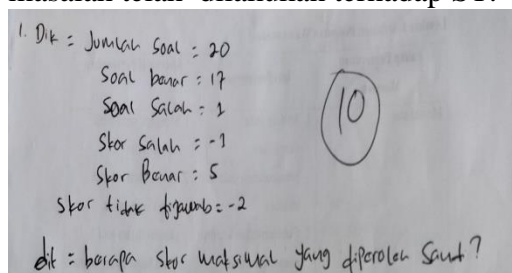 1. Dik = Jumlah Soal = 20
Soal benar : 17
Soal Salah : 1
Skor Salah : -1
Skor Benar : 5
Skor tidak dijawab = -2
10
dit = berapa skor maksimal yang diperoleh